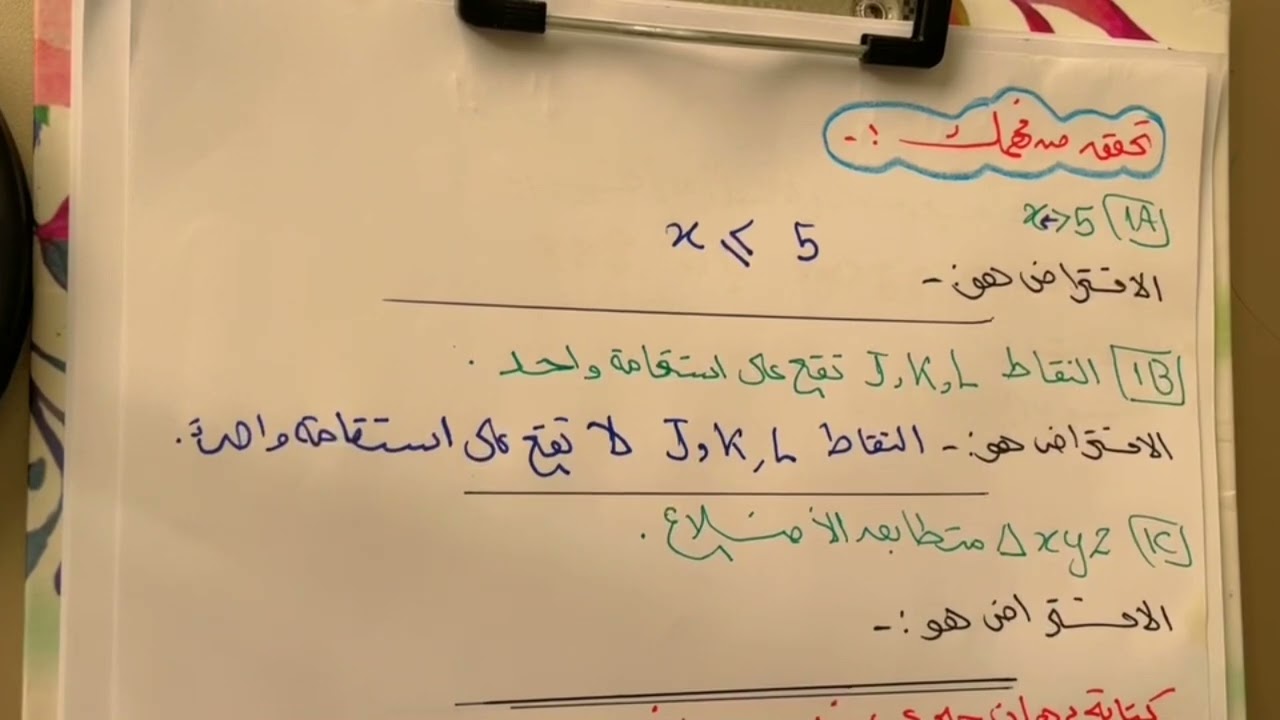 تحقق من فهمك :-
1A) x > 5
x ⩽ 5
الافتراض هو :-
1B) النقاط J, K, L تقع على استقامة واحد .
الافتراض هو :- النقاط J, K, L لا تقع على استقامة واحدة .
1C) Δ x y z متطابق الأضلاع .
الافتراض هو :-
كتابة برهان